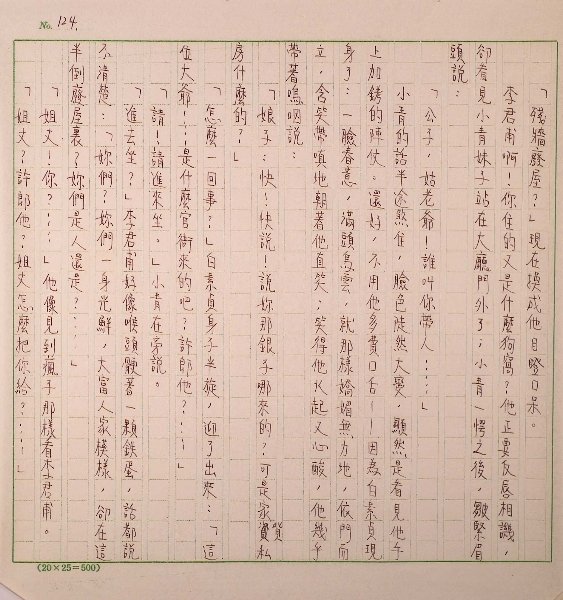 No. 124.
「殘牆廢屋？」現在換成他目瞪口呆。
李君甫啊！你住的又是什麼狗窩？他正要反唇相譏，
卻看見小青妹子站在大廳門外了；小青一愕之後，皺緊眉
頭說：
「公子，姑老爺！誰叫你帶人……」
小青的話半途煞住，臉色陡然大變，顯然是看見他手
上加銬的陣仗。還好，不用他多費口舌——因為白素貞現
身了：一臉春意，滿頭烏雲，就那樣嬌媚無力地，依門而
立，含笑帶嗔地朝著他直笑；笑得他火起又心酸，他幾乎
帶著嗚咽說：
「娘子：快！快說！說妳那銀子哪來的？可是家貲私
房什麼的？」
「怎麼一回事？」白素貞身子半旋，迎了出來：「這
位大爺！是什麼官衙來的吧？許郎他？」
「請！請進來坐。」小青在旁說。
「進去坐？」李君甫好像喉頭骾著一顆鉄蛋，話都說
不清楚：「妳們？妳們一身光鮮，大富人家模樣，卻在這
半倒廢屋裏？妳們是人還是？……」
「姐丈！你？……」他像見到瘋子那樣看李君甫。
「姐丈？許郎他？姐丈怎麼把你給？……」
(20×25=500)